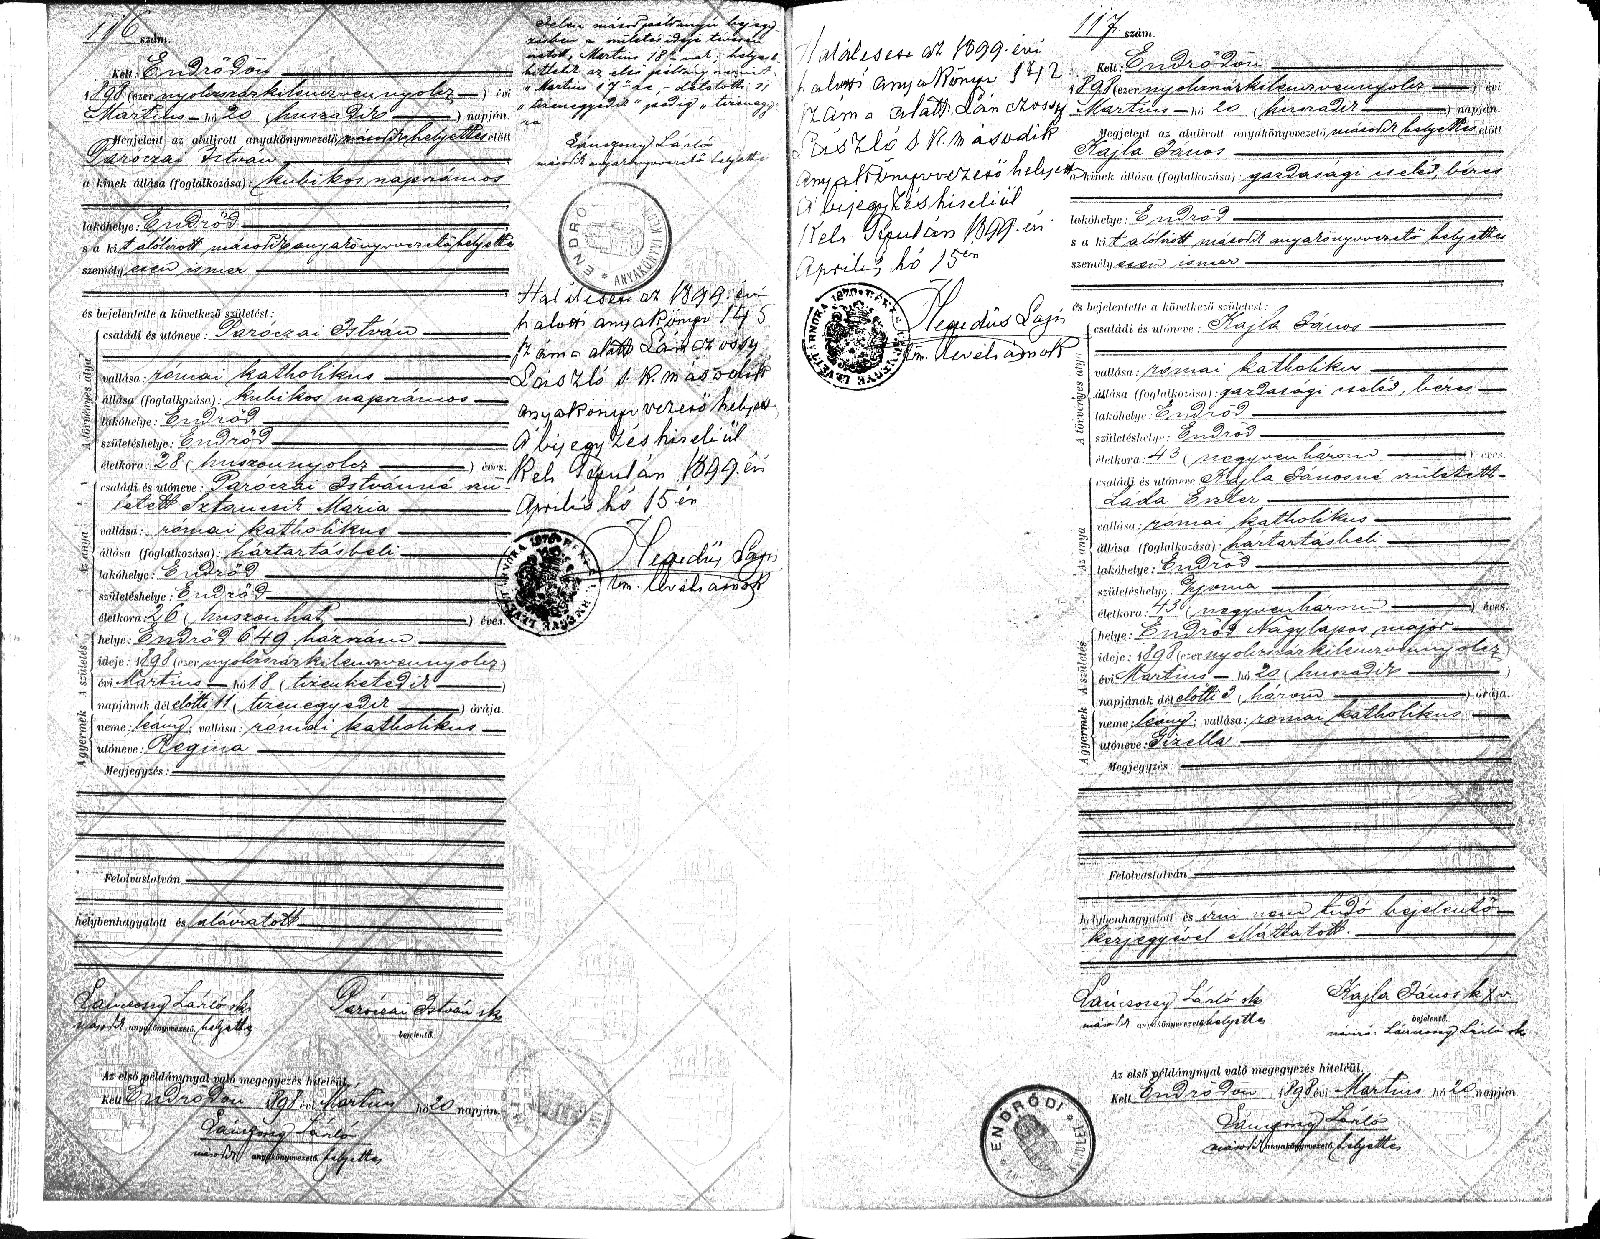 116 szám.
Kelt: Endrődön
1898 (ezer nyolczszázkilenczvennyolcz) évi
Martius hó 20 (huszadik) napján.
Megjelent az alulirott anyakönyvvezető második helyettes előtt
Paróczai István
a kinek állása (foglalkozása): kubikos napszámos
lakóhelye: Endrőd
s a kit alólirott második anyakönyvvezető helyettes
személyesen ismer
és bejelentette a következő születést:
A törvényes atya
családi és utóneve: Paróczai István
vallása: római katholikus
állása (foglalkozása): kubikos napszámos
lakóhelye: Endrőd
születéshelye: Endrőd
életkora: 28 (huszonnyolcz) éves.
Az anya
családi és utóneve: Paróczai Istvánné szü-
letett Sztancsik Maria
vallása: római katholikus
állása (foglalkozása): háztartásbeli
lakóhelye: Endrőd
születéshelye: Endrőd
életkora: 26 (huszonhat) éves.
A gyermek A születés
helye: Endrőd 649 házszám
ideje: 1898 (ezer nyolczszázkilenczvennyolcz)
évi Martius hó 18 (tizenhetedik)
napjának dél előtti 11 (tizenegyedik) órája.
neme: leány; vallása: római katholikus
utóneve: Regina
Megjegyzés:
Felolvastatván
helybenhagyatott és aláiratott
Lánczony László sk
második anyakönyvvezető helyettes
Paróczai István sk
bejelentő.
Az első példánynyal való megegyezés hiteléül.
Kelt Endrődön 1898 évi Martius hó 20 napján.
Lánczony László
második anyakönyvvezető helyettes
Jelen másodpéldányú bejegy-
zésben a születés ideje tévesen
Martius 18
az első példány szerint
"Martius 17"
"tizenegyedik" pedig "tizenegy
Lánczony László
második anyakönyvvezető helyettes
ENDRŐ
ANYAKÖNYVI KERÜLET
Halálesete az 1899. évi
halotti anyakönyv 145
szám alatt Lánczossy
László s.k. második
anyakönyvvezető helyett
A bijegyzés hiteléül
Kelt Gyulán 1899. évi
Április hó 15-én
Hegedűs Lajos
vm. levéltárnok
Halálesete az 1899. évi
halotti anyakönyv 1712
szám alatt Lánczossy
László s.k. második
anyakönyvvezető helyett
A bijegyzés hiteléül
Kelt Gyulán 1899. évi
Április hó 15én
Hegedűs Lajos
vm. levéltárnok
117 szám.
Kelt: Endrődön
1898 (ezer nyolczszázkilenczvennyolcz) évi
Martius hó 20 (huszadik) napján.
Megjelent az alulirott anyakönyvvezető második helyettes előtt
Kajla János
a kinek állása (foglalkozása): gazdasági cseléd, béres
lakóhelye: Endrőd
s a kit alólirott második anyakönyvvezető helyettes
személyesen ismer
és bejelentette a következő születést:
A törvényes atya
családi és utóneve: Kajla János
vallása: római katholikus
állása (foglalkozása): gazdasági cseléd, béres
lakóhelye: Endrőd
születéshelye: Endrőd
életkora: 43 (negyvenhárom) éves.
Az anya
családi és utóneve: Kajla Jánosné született
Láda Eszter
vallása: római katholikus
állása (foglalkozása): háztartásbeli
lakóhelye: Endrőd
születéshelye: Gyoma
életkora: 43 (negyvenhárom) éves.
A gyermek A születés
helye: Endrőd Nagylapos major
ideje: 1898 (ezer nyolczszázkilenczvennyolcz)
évi Martius hó 20 (huszadik)
napjának dél előtti 3 (három) órája.
neme: leány; vallása: római katholikus
utóneve: Gizella
Megjegyzés
Felolvastatván
helybenhagyatott és irni nem tudó bejelentő
kézjegyével elláttatott.
Lánczony László sk
második anyakönyvvezető helyettes
Kajla János k x v
bejelentő.
névíró: Lánczony László sk
Az első példánynyal való megegyezés hiteléül.
Kelt Endrődön 1898 évi Martius hó 20 napján
Lánczony László
második anyakönyvvezető helyettes
ENDRŐDI